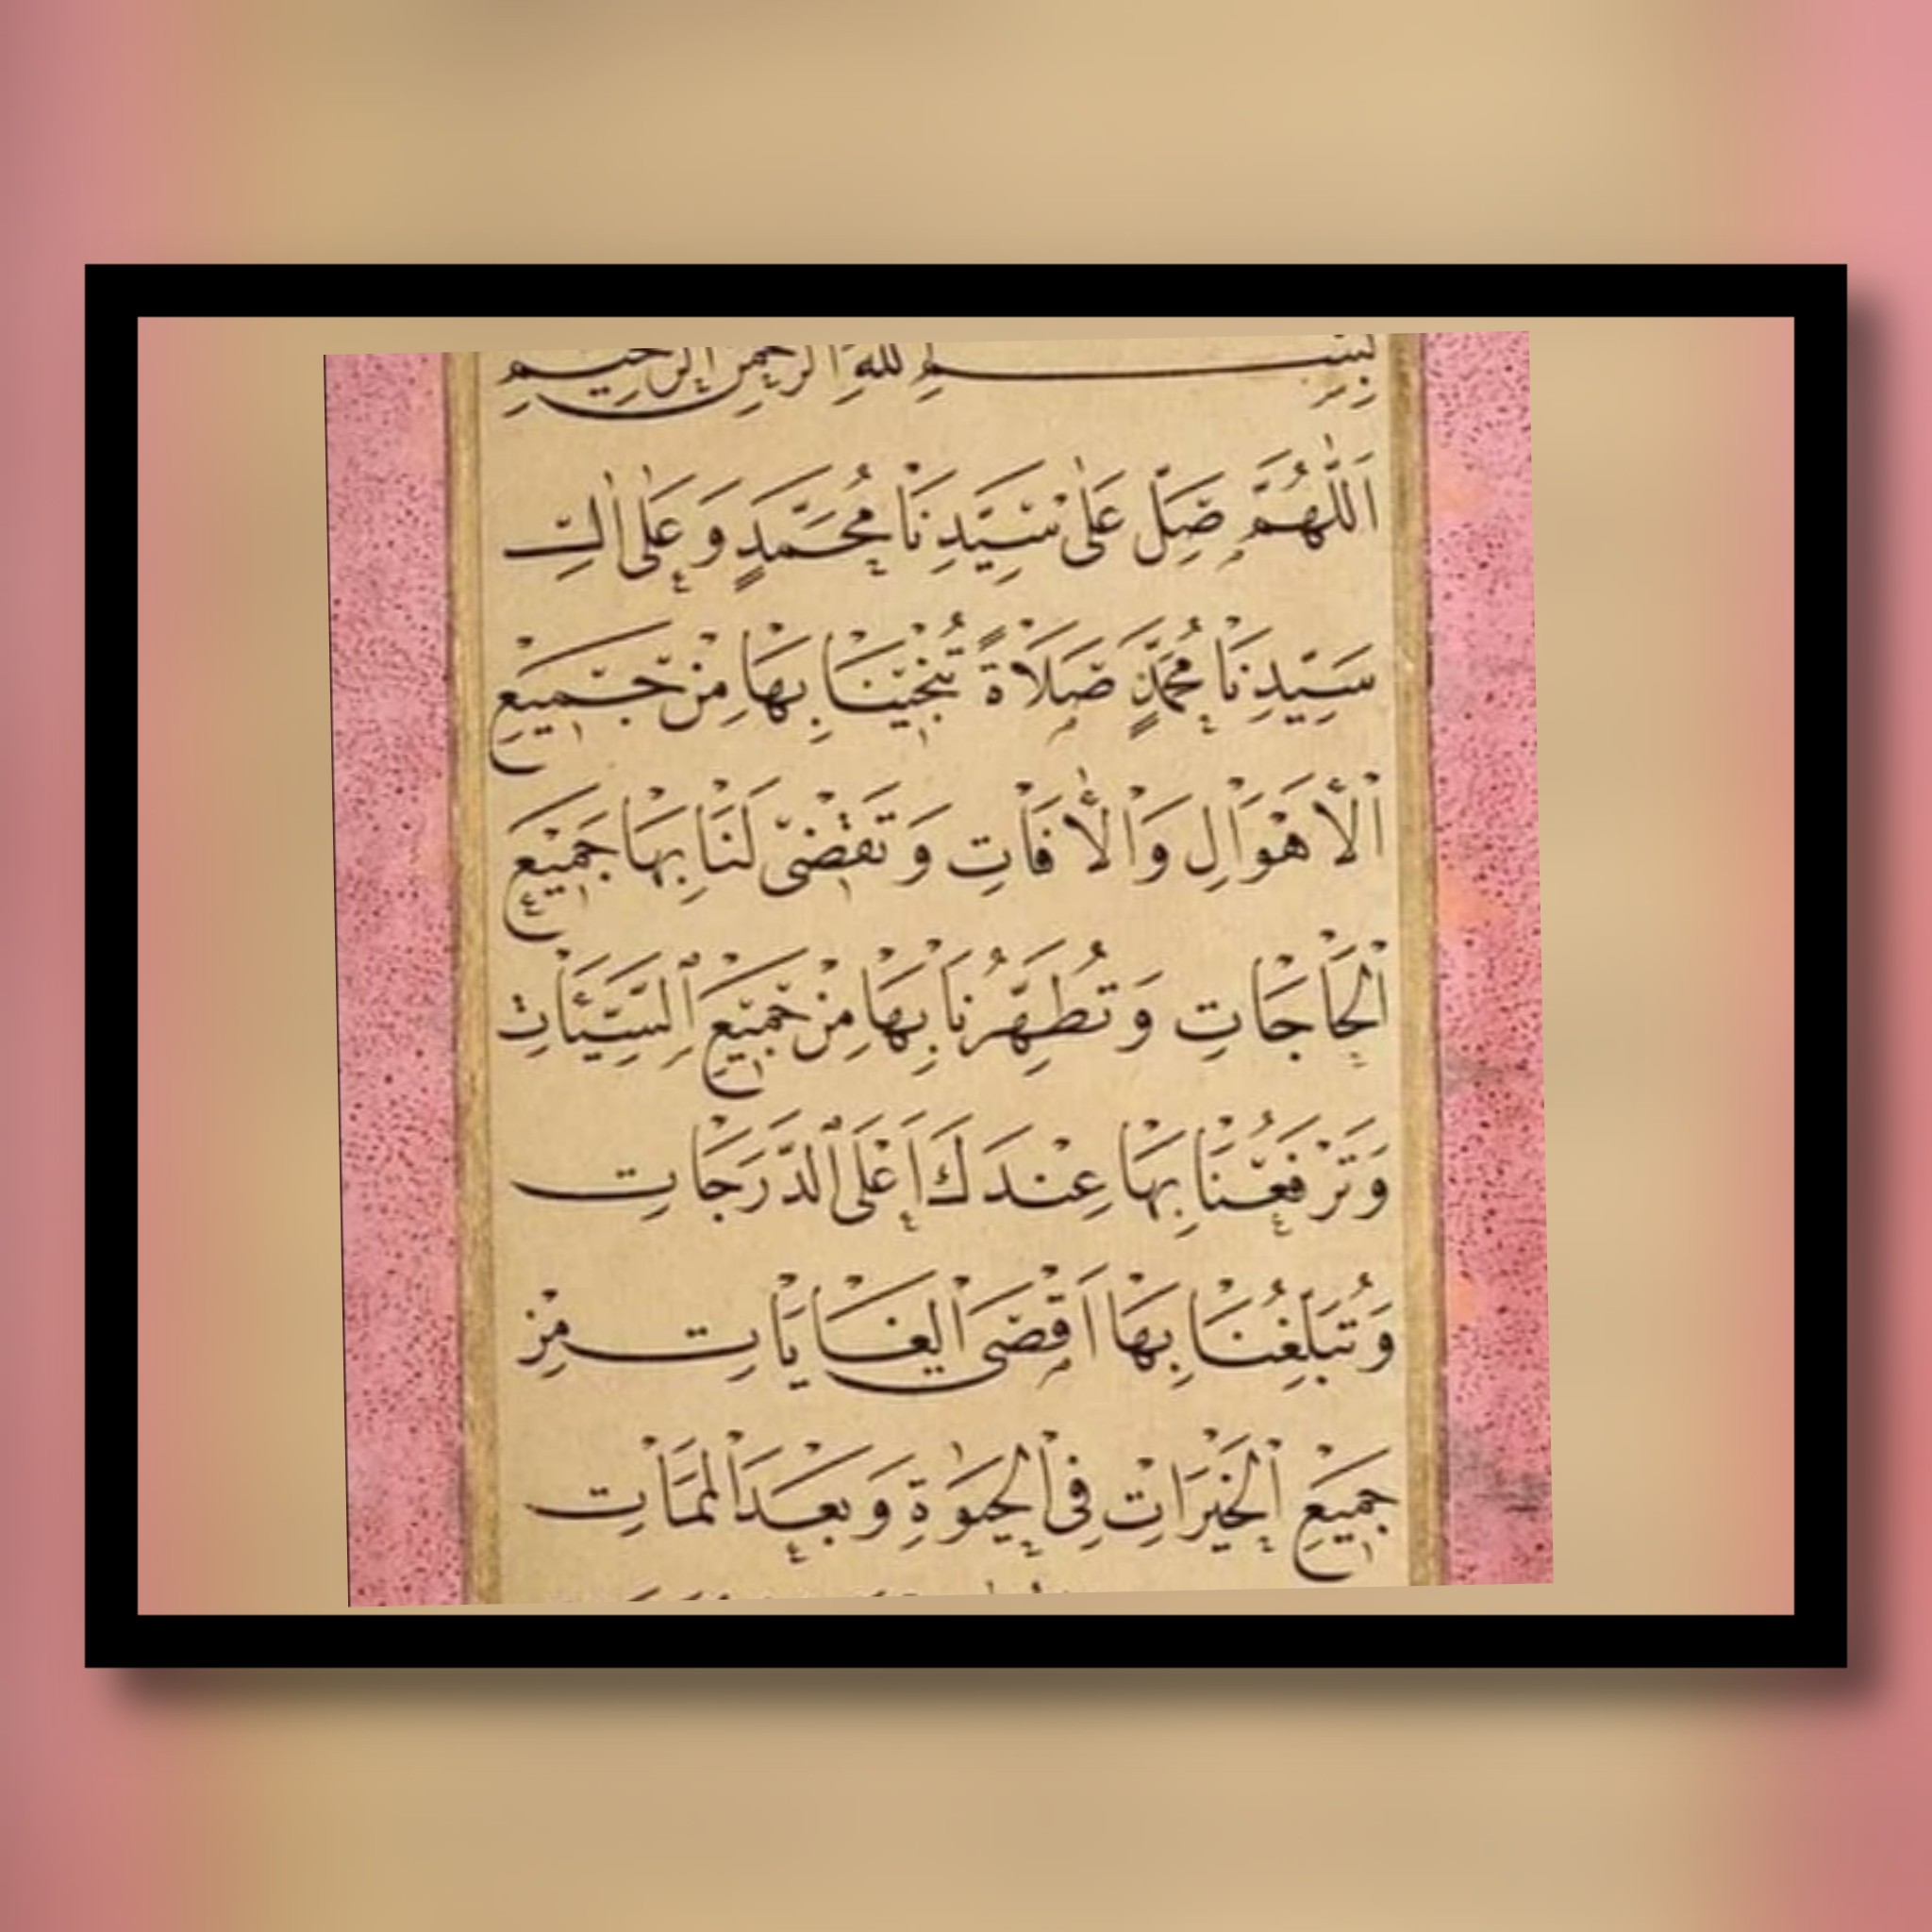 بِسْمِ اللهِ الرَّحْمٰنِ الرَّحِيمِ
اَللّٰهُمَّ صَلِّ عَلٰى سَيِّدِنَا مُحَمَّدٍ وَعَلٰى اٰلِ
سَيِّدِنَا مُحَمَّدٍ صَلَاةً تُنْجِينَا بِهَا مِنْ جَمِيعِ
الْاَهْوَالِ وَالْاٰفَاتِ وَتَقْضِى لَنَا بِهَا جَمِيعَ
الْحَاجَاتِ وَتُطَهِّرُنَا بِهَا مِنْ جَمِيعِ السَّيِّئَاتِ
وَتَرْفَعُنَا بِهَا عِنْدَكَ اَعْلَى الدَّرَجَاتِ
وَتُبَلِّغُنَا بِهَا اَقْصَى الْغَايَاتِ مِنْ
جَمِيعِ الْخَيْرَاتِ فِى الْحَيٰوةِ وَبَعْدَ الْمَمَاتِ